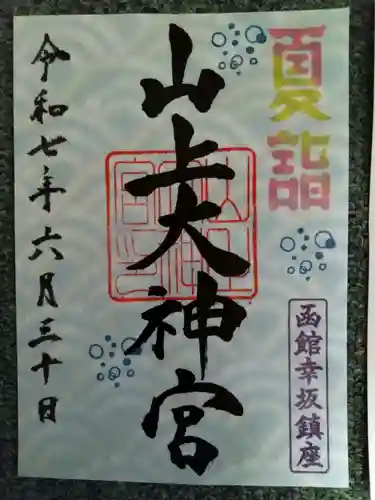 夏詣
函館幸坂鎮座
山上大神宮
令和七年六月三十日